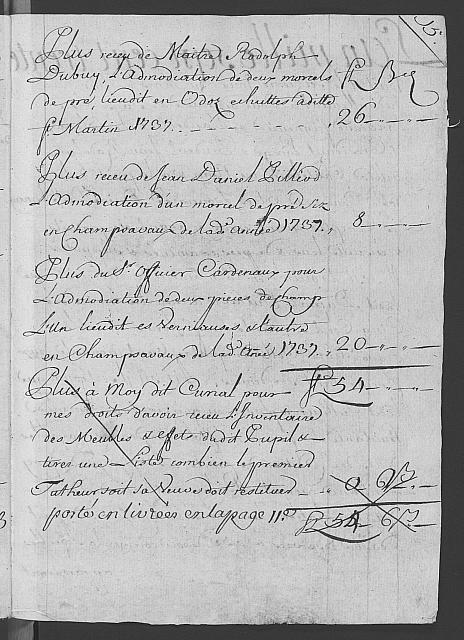 15.
Plus receu de Maitre Rodolph
Dubuy, L'Admodiation de deux morcels fl. Bz
de pré, lieudit en Odoz echuttes a ditte
St Martin 1737. 26
Plus receu de Jean Daniel Pilliod
L'admodiation d'un morcel de pré Siz
en Champsavaux de lad.e Année 1737., 8
Plus du Sr. Officier Cardenaux pour
L'Admodiation de deux pieces de champ
L'Un lieudit es Verniauses, & l'autre
en Champsavaux de lad.e Ané 1737., 20
fl 54
Plus à Moy dit Curial pour
mes droits d'avoir receu l'Inventaire
des Meubles & effets dudit Pupil &
tires une Liste combien le premier
Tutheur soit sa Veuve doit restituer
portés en livrées en la page 11.e fl 54 6